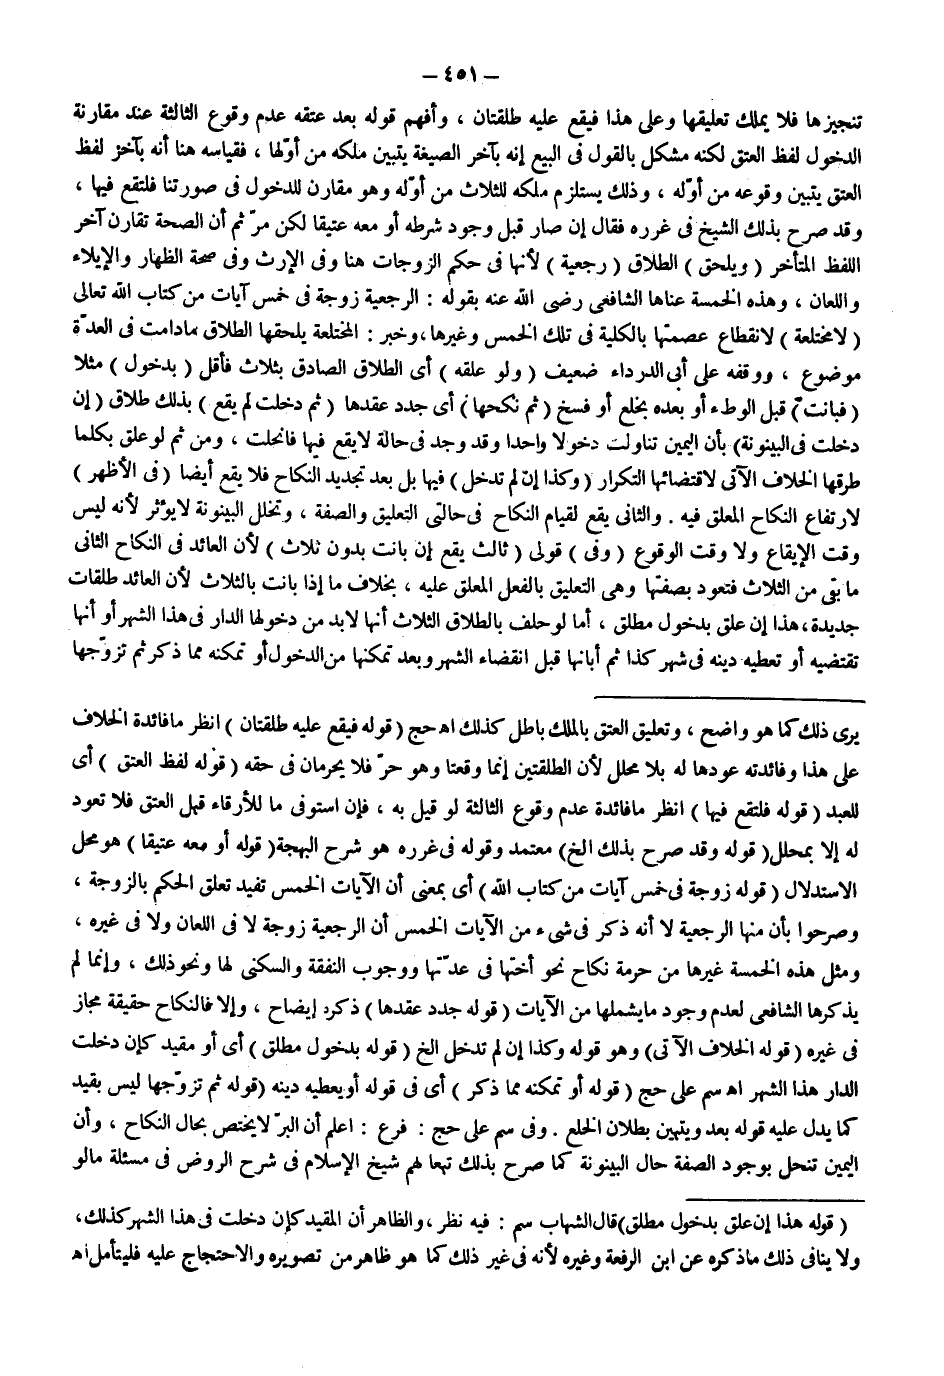 — ٤٥١ —
تنجيزها فلا يملك تعليقها وعلى هذا فيقع عليه طلقتان ، وأفهم قوله بعد عتقه عدم وقوع الثالثة عند مقارنة
الدخول لفظ العتق لكنه مشكل بالقول فى البيع إنه بآخر الصيغة يتبين ملكه من أوّلها ، فقياسه هنا أنه بآخر لفظ
العتق يتبين وقوعه من أوّله ، وذلك يستلزم ملكه للثلاث من أوّله وهو مقارن للدخول فى صورتنا فلتقع فيها ،
وقد صرح بذلك الشيخ فى غرره فقال إن صار قبل وجود شرطه أو معه عتيقا لكن مرّ ثم أن الصحة تقارن آخر
اللفظ المتأخر ( ويلحق ) الطلاق ( رجعية ) لأنها فى حكم الزوجات هنا وفى الإرث وفى صحة الظهار والإيلاء
واللعان ، وهذه الخمسة عناها الشافعى رضى الله عنه بقوله : الرجعية زوجة فى خمس آيات من كتاب الله تعالى
( لا مختلعة ) لانقطاع عصمتها بالكلية فى تلك الخمس وغيرها ، وخبر : المختلعة يلحقها الطلاق مادامت فى العدّة
موضوع ، ووقفه على أبى الدرداء ضعيف ( ولو علقه ) أى الطلاق الصادق بثلاث فأقل ( بدخول ) مثلا
( فبانت ) قبل الوطء أو بعده بخلع أو فسخ ( ثم نكحها ) أى جدد عقدها ( ثم دخلت لم يقع ) بذلك طلاق ( إن
دخلت فى البينونة ) بأن اليمين تناولت دخولا واحدا وقد وجد فى حالة لا يقع فيها فانحلت ، ومن ثم لو علق بكلما
طرقها الخلاف الآتى لاقتضائها التكرار ( وكذا إن لم تدخل ) فيها بل بعد تجديد النكاح فلا يقع أيضا ( فى الأظهر )
لارتفاع النكاح المعلق فيه . والثانى يقع لقيام النكاح فى حالتى التعليق والصفة ، وتخلل البينونة لا يؤثر لأنه ليس
وقت الإيقاع ولا وقت الوقوع ( وفى ) قولى ( ثالث يقع إن بانت بدون ثلاث ) لأن العائد فى النكاح الثانى
ما بقى من الثلاث فتعود بصفتها وهى التعليق بالفعل المعلق عليه ، بخلاف ما إذا بانت بالثلاث لأن العائد طلقات
جديدة ، هذا إن علق بدخول مطلق ، أما لو حلف بالطلاق الثلاث أنها لابد من دخولها الدار فى هذا الشهر أو أنها
تقتضيه أو تعطيه دينه فى شهر كذا ثم أبانها قبل انقضاء الشهر وبعد تمكنها من الدخول أو تمكنه مما ذكر ثم تزوّجها
يرى ذلك كما هو واضح ، وتعليق العتق بالملك باطل كذلك اه حج ( قوله فيقع عليه طلقتان ) انظر ما فائدة الخلاف
على هذا وفائدته عودها له بلا محلل لأن الطلقتين إنما وقعتا وهو حرّ فلا يحرمان فى حقه ( قوله لفظ العتق ) أى
للعبد ( قوله فلتقع فيها ) انظر ما فائدة عدم وقوع الثالثة لو قيل به ، فإن استوفى ما للأرقاء قبل العتق فلا تعود
له إلا بمحلل ( قوله وقد صرح بذلك الخ ) معتمد وقوله فى غرره هو شرح البهجة ( قوله أو معه عتيقا ) هو محل
الاستدلال ( قوله زوجة فى خمس آيات من كتاب الله ) أى بمعنى أن الآيات الخمس تفيد تعلق الحكم بالزوجة ،
وصرحوا بأن منها الرجعية لا أنه ذكر فى شىء من الآيات الخمس أن الرجعية زوجة لا فى اللعان ولا فى غيره ،
ومثل هذه الخمسة غيرها من حرمة نكاح نحو أختها فى عدّتها ووجوب النفقة والسكنى لها ونحو ذلك ، وإنما لم
يذكرها الشافعى لعدم وجود ما يشملها من الآيات ( قوله جدد عقدها ) ذكره إيضاح ، وإلا فالنكاح حقيقة مجاز
فى غيره ( قوله الخلاف الآتى ) وهو قوله وكذا إن لم تدخل الخ ( قوله بدخول مطلق ) أى أو مقيد كإن دخلت
الدار هذا الشهر اه سم على حج ( قوله أو تمكنه مما ذكر ) أى فى قوله أو يعطيه دينه ( قوله ثم تزوّجها ليس بقيد
كما يدل عليه قوله بعد ويتبين بطلان الخلع . وفى سم على حج : فرع : اعلم أن البرّ لا يختص بحال النكاح ، وأن
اليمين تنحل بوجود الصفة حال البينونة كما صرح بذلك تبعا لهم شيخ الإسلام فى شرح الروض فى مسئلة مالو
( قوله هذا إن علق بدخول مطلق ) قال الشهاب سم : فيه نظر ، والظاهر أن المقيد كإن دخلت فى هذا الشهر كذلك ،
ولا ينافى ذلك ما ذكره عن ابن الرفعة وغيره لأنه فى غير ذلك كما هو ظاهر من تصويره والاحتجاج عليه فليتأمل اه